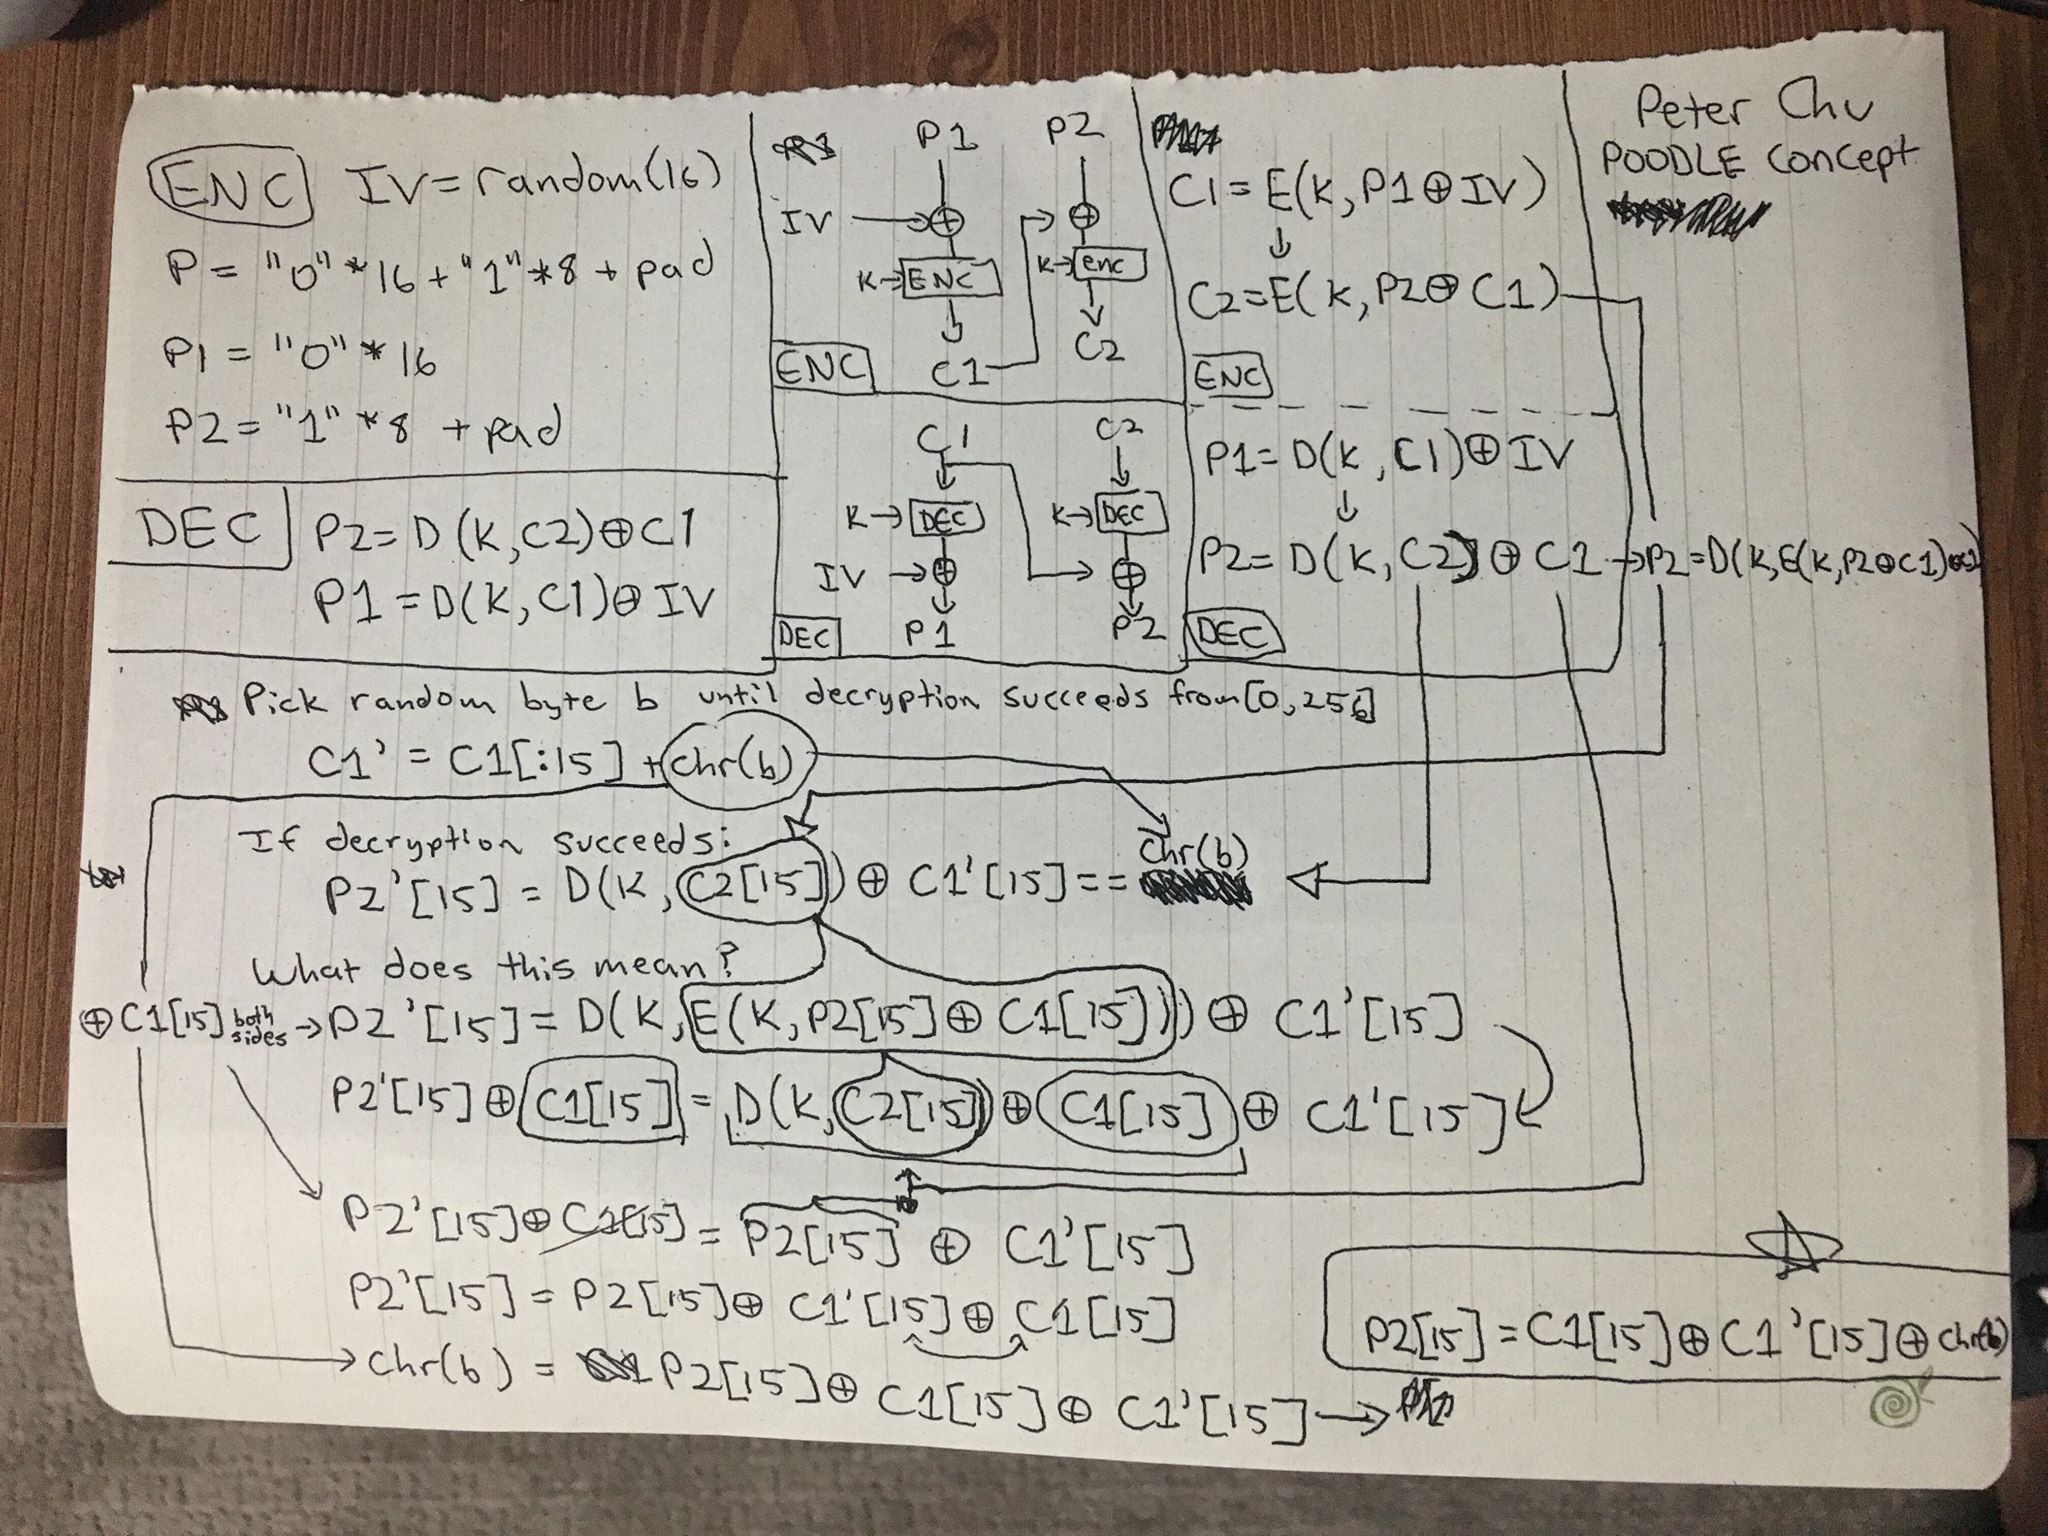 ENC IV = random(16)
P = "0" * 16 + "1" * 8 + pad
P1 = "0" * 16
P2 = "1" * 8 + pad
DEC P2 = D(K, C2) ⊕ C1
P1 = D(K, C1) ⊕ IV
P1 P2
IV → ⊕ ⊕
K → ENC K → enc
C1 C2
ENC
C1 C2
K → DEC K → DEC
IV → ⊕ ⊕
DEC P1 P2
C1 = E(K, P1 ⊕ IV)
↓
C2 = E(K, P2 ⊕ C1)
ENC
P1 = D(K, C1) ⊕ IV
↓
P2 = D(K, C2) ⊕ C1 → P2 = D(K, E(K, P2 ⊕ C1) ⊕ C1)
DEC
Peter Chu
POODLE concept
Pick random byte b until decryption succeeds from [0, 256]
C1' = C1[:15] + chr(b)
If decryption succeeds:
chr(b)
P2'[15] = D(K, C2[15]) ⊕ C1'[15] ==
What does this mean?
⊕ C1[15] both sides → P2'[15] = D(K, E(K, P2[15] ⊕ C1[15])) ⊕ C1'[15]
P2'[15] ⊕ C1[15] = D(K, C2[15]) ⊕ C1[15] ⊕ C1'[15]
P2'[15] ⊕ C1[15] = P2[15] ⊕ C1'[15]
P2'[15] = P2[15] ⊕ C1'[15] ⊕ C1[15]
chr(b) = P2[15] ⊕ C1[15] ⊕ C1'[15] →
P2[15] = C1[15] ⊕ C1'[15] ⊕ chr(b)